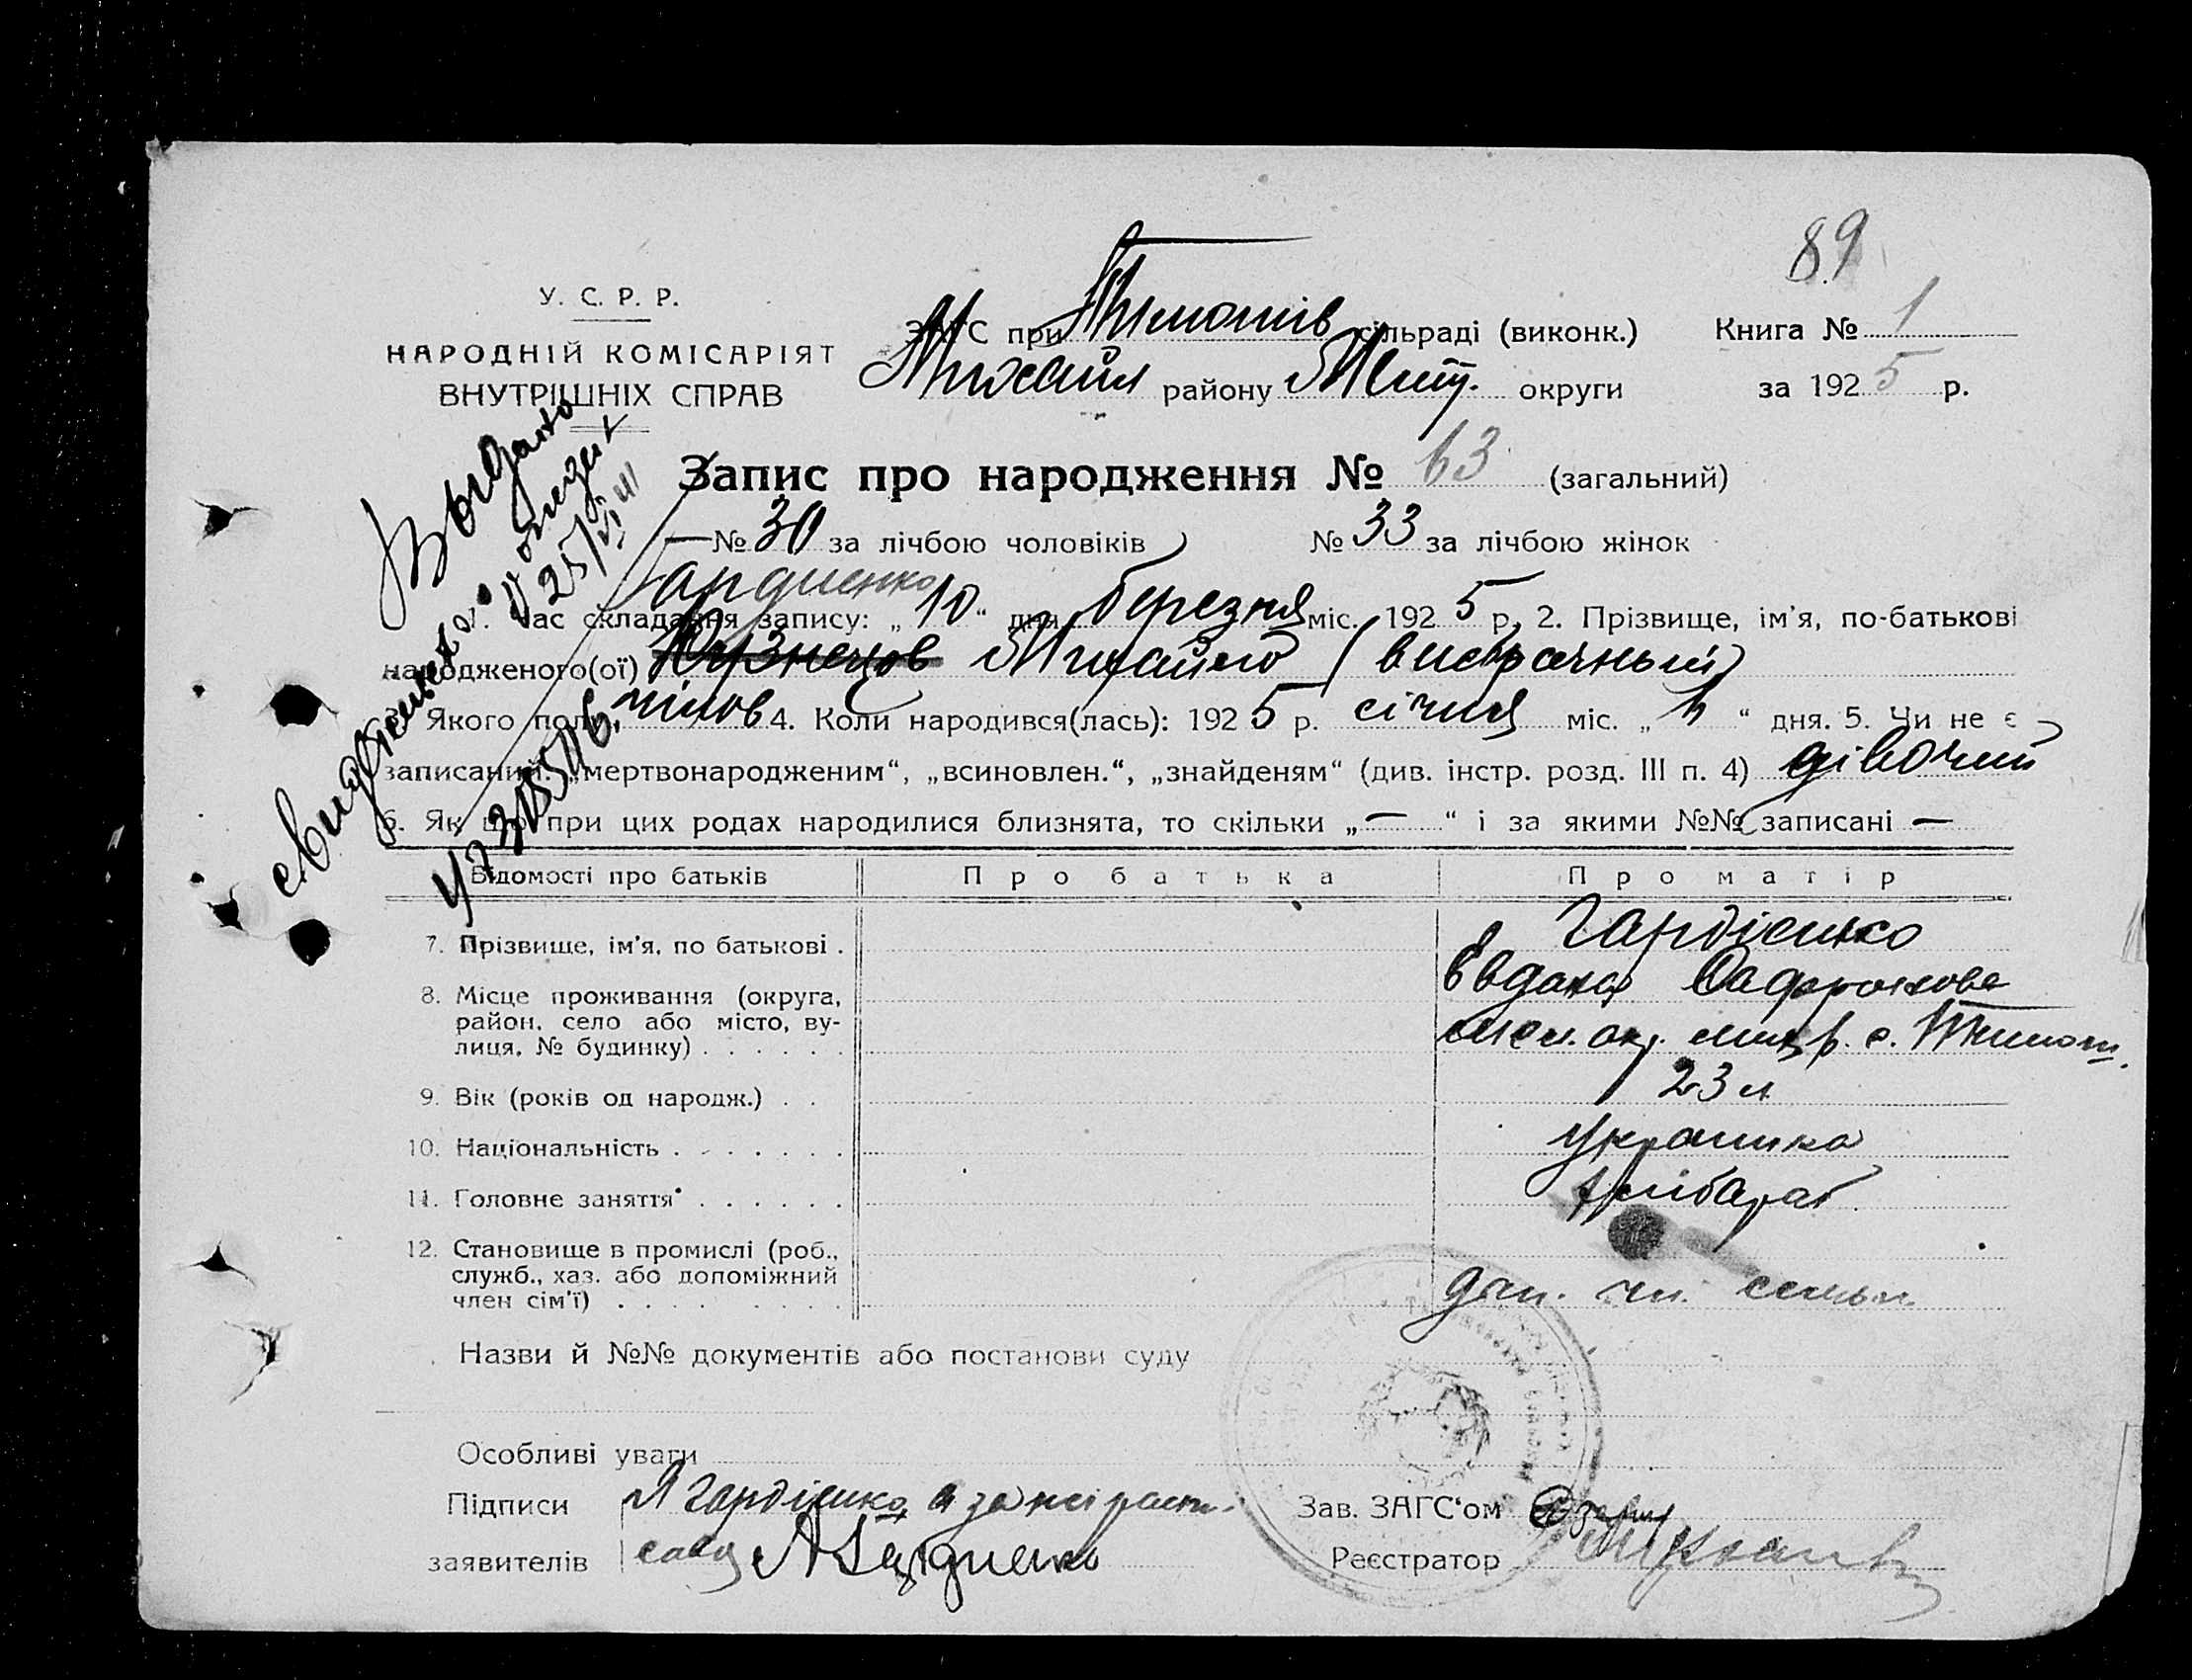 89
У. С. Р. Р.
НАРОДНІЙ КОМІСАРІЯТ
ВНУТРІШНІХ СПРАВ
ЗАГС при Тимошів сільраді (виконк.)
Книга № 1
Михайл району Меліт. округи
за 1925 р.
Запис про народження № 63 (загальний)
№ 30 за лічбою чоловіків № 33 за лічбою жінок
Гардиенко
1. Час складання запису: „10“ дня березня міс. 1925 р. 2. Прізвище, ім'я, по-батькові
народженого(ої) Кузнецов Михайло (внебрачный)
3. Якого полу чілов 4. Коли народився(лась): 1925 р. січня міс. „ “ дня. 5. Чи не є
записаний: „мертвонародженим“, „всиновлен.“, „знайденям“ (див. інстр. розд. III п. 4) дівочий
6. Як що при цих родах народилися близнята, то скільки „—“ і за якими №№ записані —
Выдано
свидетельство
25/VI 41
Відомості про батьків
Про батька
Про матір
7. Прізвище, ім'я, по батькові .
Гардієнко
Евдокия
8. Місце проживання (округа,
район, село або місто, ву-
лиця, № будинку) . . . . . .
мел. окр. мих р. с. Тимош.
9. Вік (років од народж.) . .
23 л
10. Національність . . . . . . .
Украинка
11. Головне заняття . . . . . .
хлібароб
12. Становище в промислі (роб.,
служб., хаз. або допоміжний
член сім'ї) . . . . . . . . .
доп. чл. семьи
Назви й №№ документів або постанови суду
Особливі уваги
Підписи
Я Гардієнко а за неї распи-
заявителів
Гардиенко
Зав. ЗАГС'ом
Реєстратор